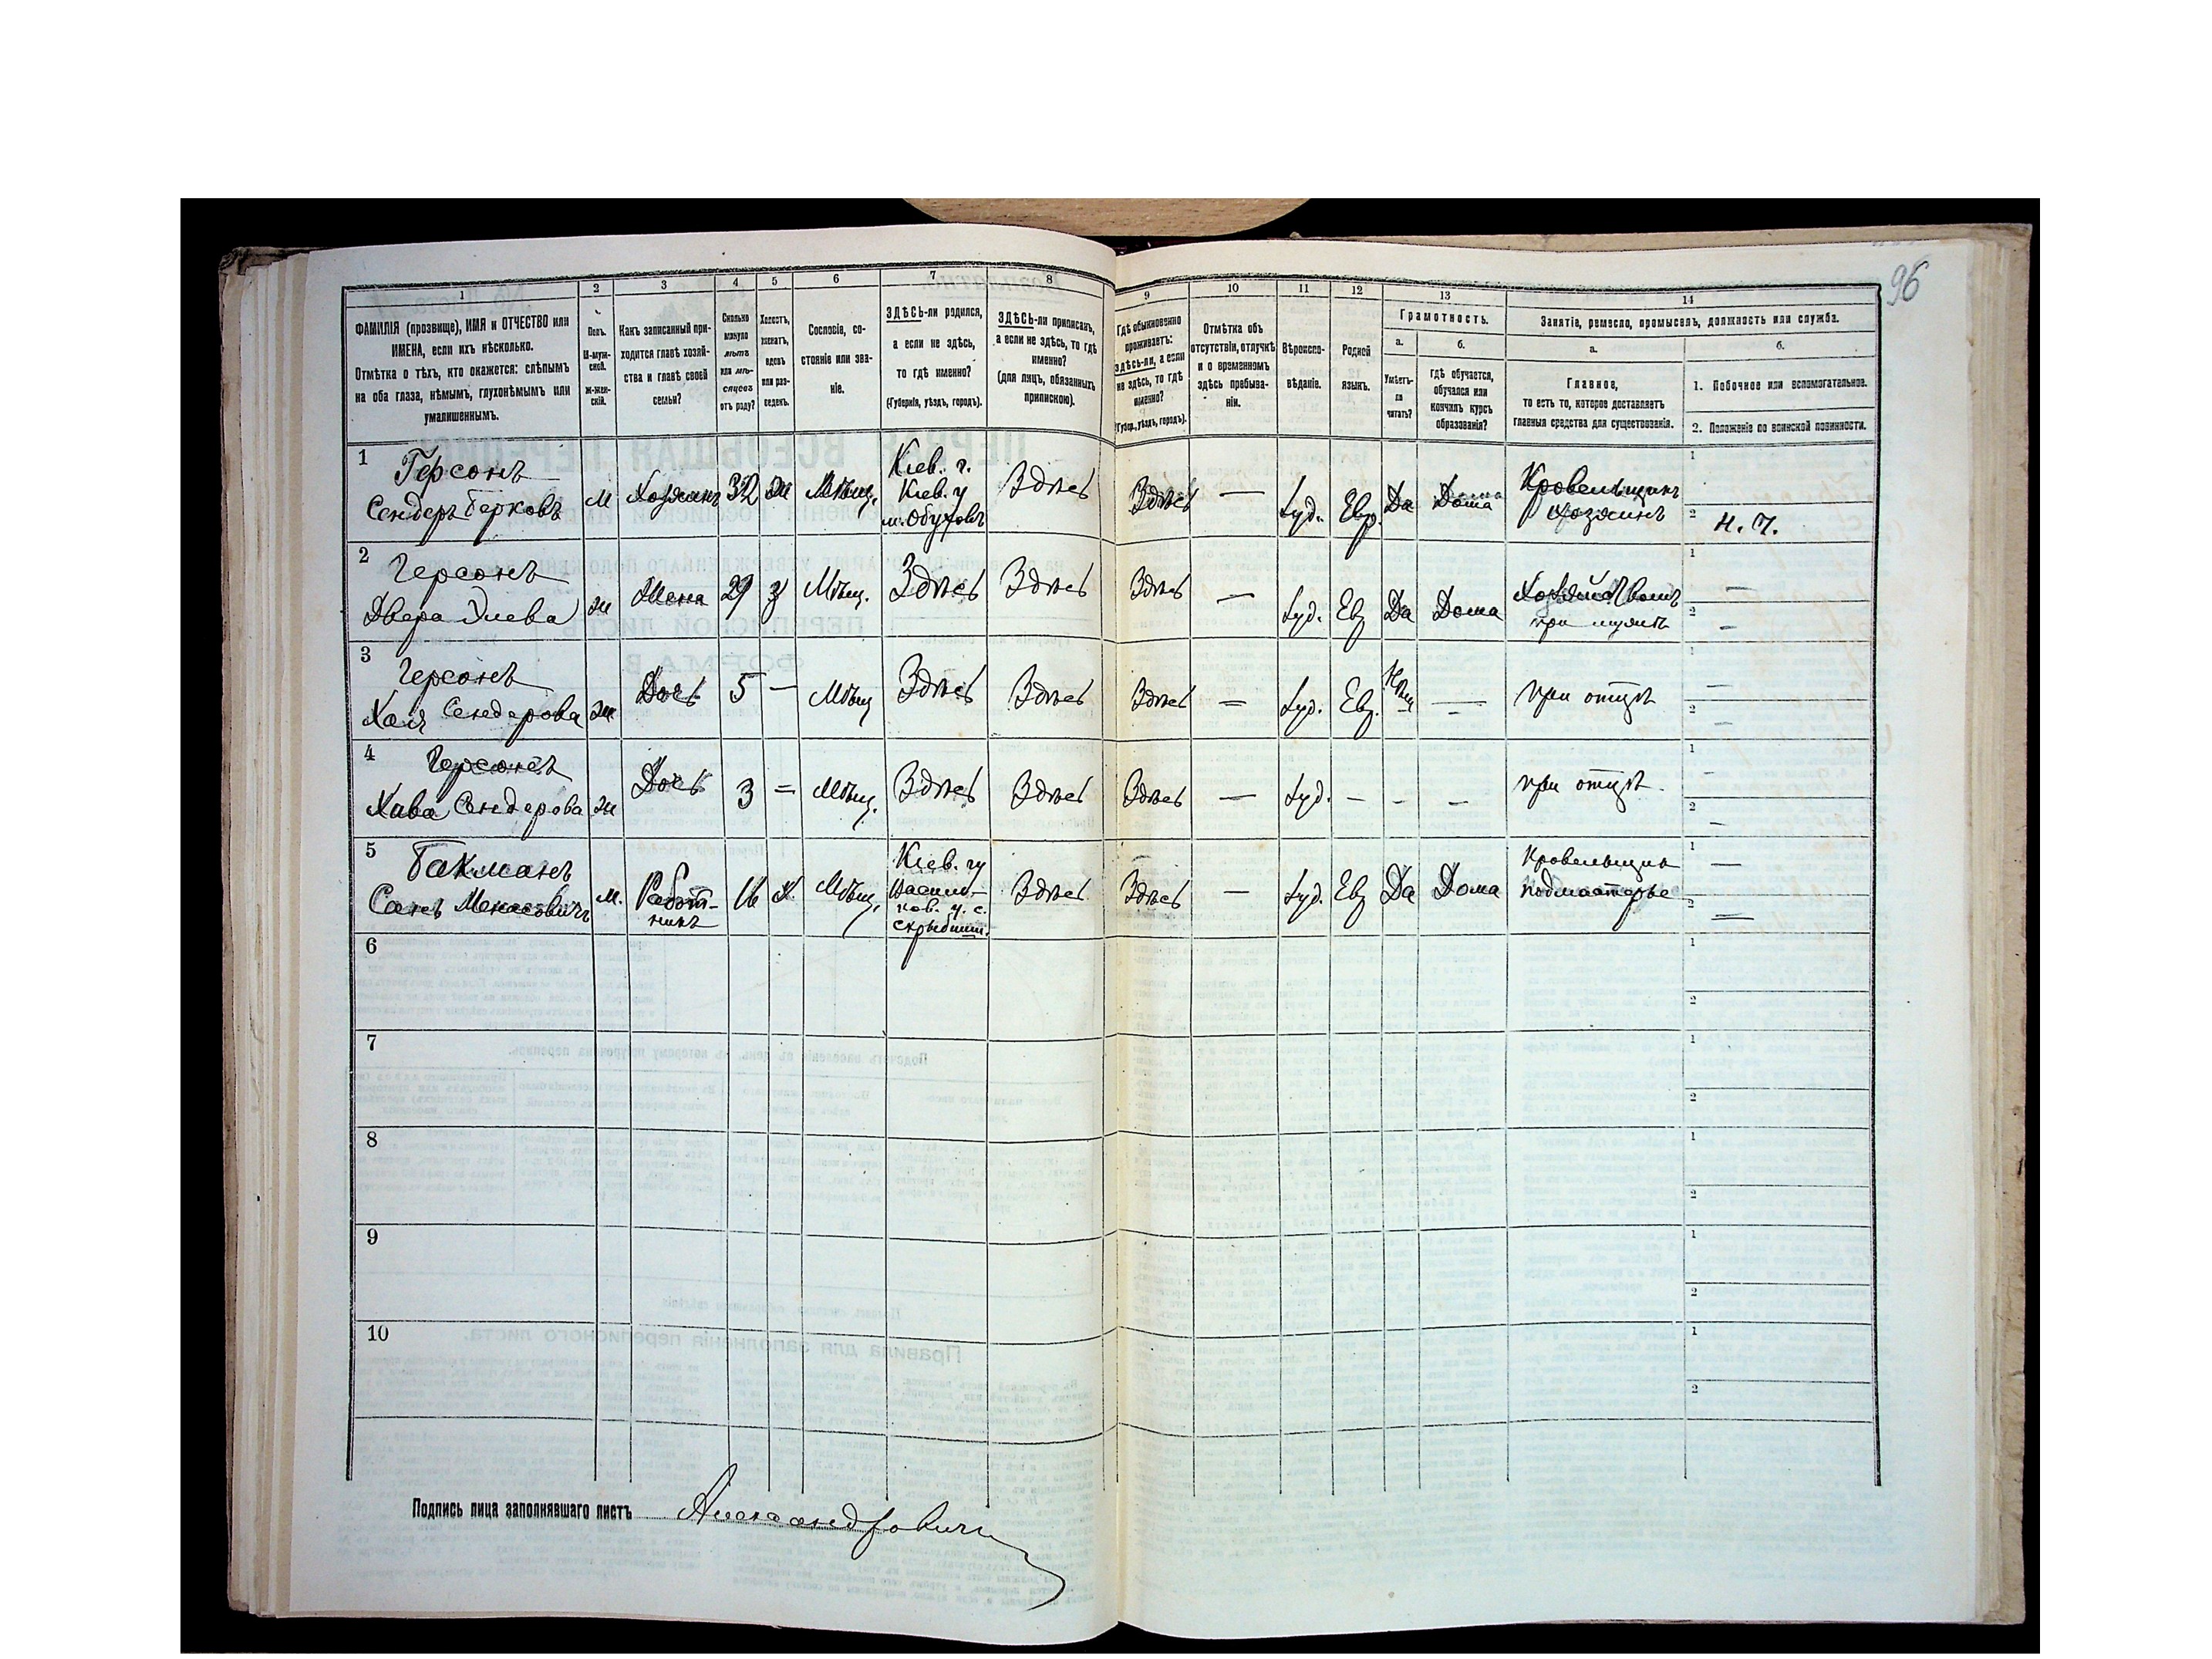 96
1 2 3 4 5 6 7 8 9 10 11 12 13 14
ФАМИЛІЯ (прозвище), ИМЯ и ОТЧЕСТВО или
ИМЕНА, если ихъ нѣсколько.
Отмѣтка о тѣхъ, кто окажется: слѣпымъ
на оба глаза, нѣмымъ, глухонѣмымъ или
умалишеннымъ.
Полъ.
М-муж-
ской.
Ж-жен-
скій.
Какъ записанный при-
ходится главѣ хозяй-
ства и главѣ своей
семьи?
Сколько
минуло
лѣтъ
или мѣ-
сяцевъ
отъ роду?
Холостъ,
женатъ,
вдовъ
или раз-
веденъ.
Сословіе, со-
стояніе или зва-
ніе.
ЗДѢСЬ-ли родился,
а если не здѣсь,
то гдѣ именно?
(Губернія, уѣздъ, городъ).
ЗДѢСЬ-ли приписанъ,
а если не здѣсь, то гдѣ
именно?
(для лицъ, обязанныхъ
припискою).
Гдѣ обыкновенно
проживаетъ:
здѣсь-ли, а если
не здѣсь, то гдѣ
именно?
(Губер., уѣздъ, городъ).
Отмѣтка объ
отсутствіи, отлучкѣ
и о временномъ
здѣсь пребыва-
ніи.
Вѣроиспо-
вѣданіе.
Родной
языкъ.
Грамотность.
а.
Умѣетъ-
ли
читать?
б.
гдѣ обучается,
обучался или
кончилъ курсъ
образованія?
Занятіе, ремесло, промыселъ, должность или служба.
а.
Главное,
то есть то, которое доставляетъ
главныя средства для существованія.
б.
1. Побочное или вспомогательное.
2. Положеніе по воинской повинности.
1 Герсонъ
Сендеръ Берковъ
М
Хозяинъ
32
Ж
Мѣщ.
Кіев. г.
Кіев. у
м. Обуховъ
Здѣсь
Здѣсь
—
Іуд.
Евр.
Да
Дома
Кровельщикъ
хозяинъ
1
2 Н. Ч.
2 Герсонъ
Двера
Ж
Жена
29
З
Мѣщ.
Здѣсь
Здѣсь
Здѣсь
—
Іуд.
Евр
Да
Дома
при мужѣ
1 —
2 —
3 Герсонъ
Хая Сендерова
Ж
Дочь
5
—
Мѣщ
Здѣсь
Здѣсь
Здѣсь
—
Іуд.
Евр.
Нѣт
—
при отцѣ
1 —
2 —
4 Герсонъ
Хава Сендерова
Ж
Дочь
3
=
Мѣщ.
Здѣсь
Здѣсь
Здѣсь
—
Іуд.
—
-
—
при отцѣ.
1 -
2 -
5 Бакманъ
М.
Работ-
никъ
16
Х.
Мѣщ.
Кіев. гу
Василь-
ков. у. с.
Здѣсь
Здѣсь
—
Іуд.
Евр
Да
Дома
Кровельщик
подмастерье
1 —
2 —
6
1
2
7
1
2
8
1
2
9
1
2
10
1
2
Подпись лица заполнявшаго листъ Александровичъ